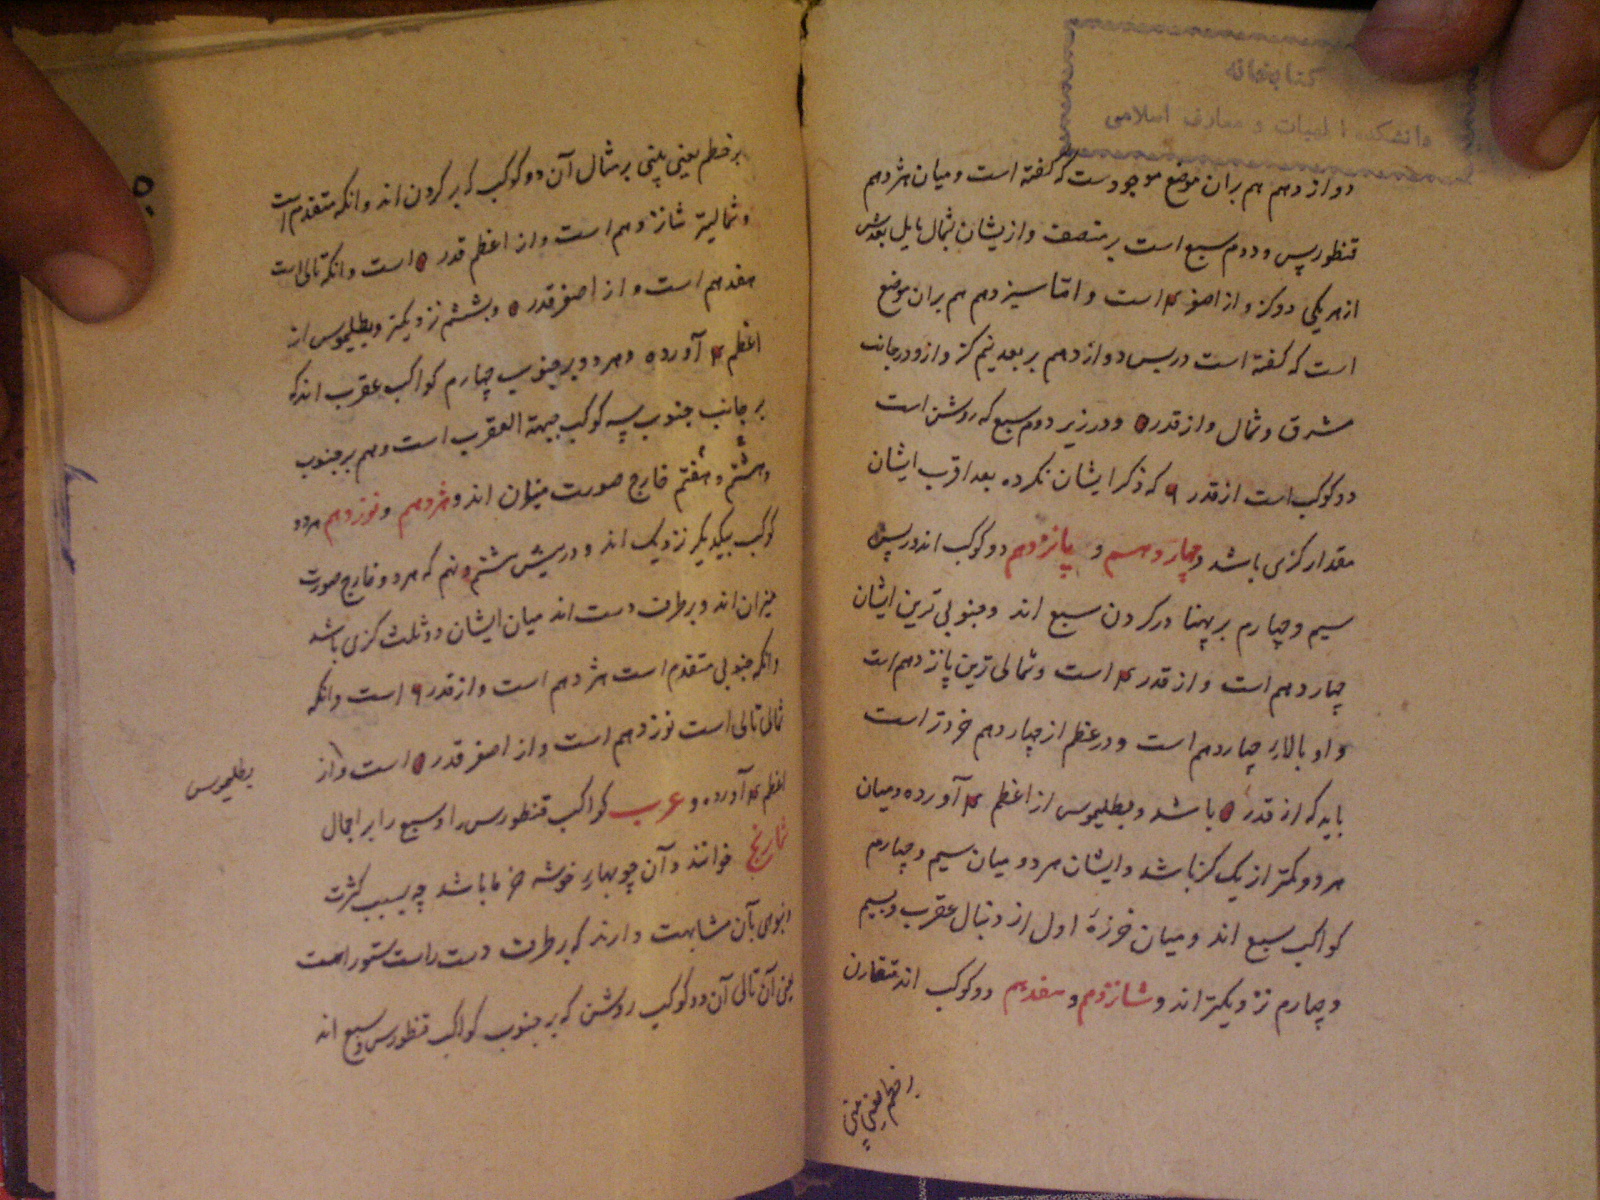 کتابخانه
دانشکده الهیات و معارف اسلامی
دوازدهم هم بران موضع موجودست که گفته است و میان هژدهم
قنطورس و دوم سبع است بر منتصف و ازیشان بشمال مایل بعدش
از هر یکی دو کز و از اصغر ۴ است و اما سیزدهم هم بران موضع
است که گفته است در پس دوازدهم بر بعد نیم کز و ازو در جانب
مشرق و شمال و از قدر ۵ و در زیر دوم سبع که روشن است
دو کوکب است از قدر ۶ که ذکر ایشان نکرده بعد اقرب ایشان
مقدار کزی باشد و چهاردهم و پانزدهم دو کوکب اند در پس
سیم و چهارم بر پهنا در کردن سبع اند و جنوبی ترین ایشان
چهاردهم است و از قدر ۴ است و شمالی ترین پانزدهم است
و او بالای چهاردهم است و در عظم از چهاردهم خردتر است
باید که از قدر ۵ باشد و بطلیموس از اعظم ۴ آورده و میان
هر دو کمتر از یک کز باشد و ایشان هر دو میان سیم و چهارم
کواکب سبع اند و میان خرزهٔ اول از دنبال عقرب و بسیم
و چهارم نزدیکتر اند و شانزدهم و هفدهم دو کوکب اند متقارن
بر خطم یعنی بینی
بر خطم یعنی بینی بر مثال آن دو کوکب که بر کردن اند و انکه متقدم است
و شمالیتر شانزدهم است و از اعظم قدر ۵ است و انکه تالی است
هفدهم است و از اصغر قدر ۵ و بششم نزدیکتر و بطلیموس از
اعظم ۴ آورده و هر دو بر جنوب چهارم کواکب عقرب اند که
بر جانب جنوب سه کوکب جبهة العقرب است و هم بر جنوب
هشتم و هفتم خارج صورت میزان اند و هژدهم و نوزدهم هر دو
کوکب بیکدیکر نزدیک اند و در پیش ششم و نهم که هر دو خارج صورت
میزان اند و بر طرف دست اند میان ایشان دو ثلث کزی باشد
وانکه جنوبی متقدم است هژدهم است و از قدر ۶ است وانکه
شمالی تالی است نوزدهم است و از اصغر قدر ۵ است و از
بطلیموس
اعظم ۴ آورده و عرب کواکب قنطورس را و سبع را بر اجمال
شماریخ خوانند و آن چوبهای خوشه خرما باشد چه بسبب کثرت
انبوهی بآن مشابهت دارند که بر طرف دست راست ستور است
یعنی آن تالی آن دو کوکب روشن که بر جنوب کواکب قنطورس و سبع اند